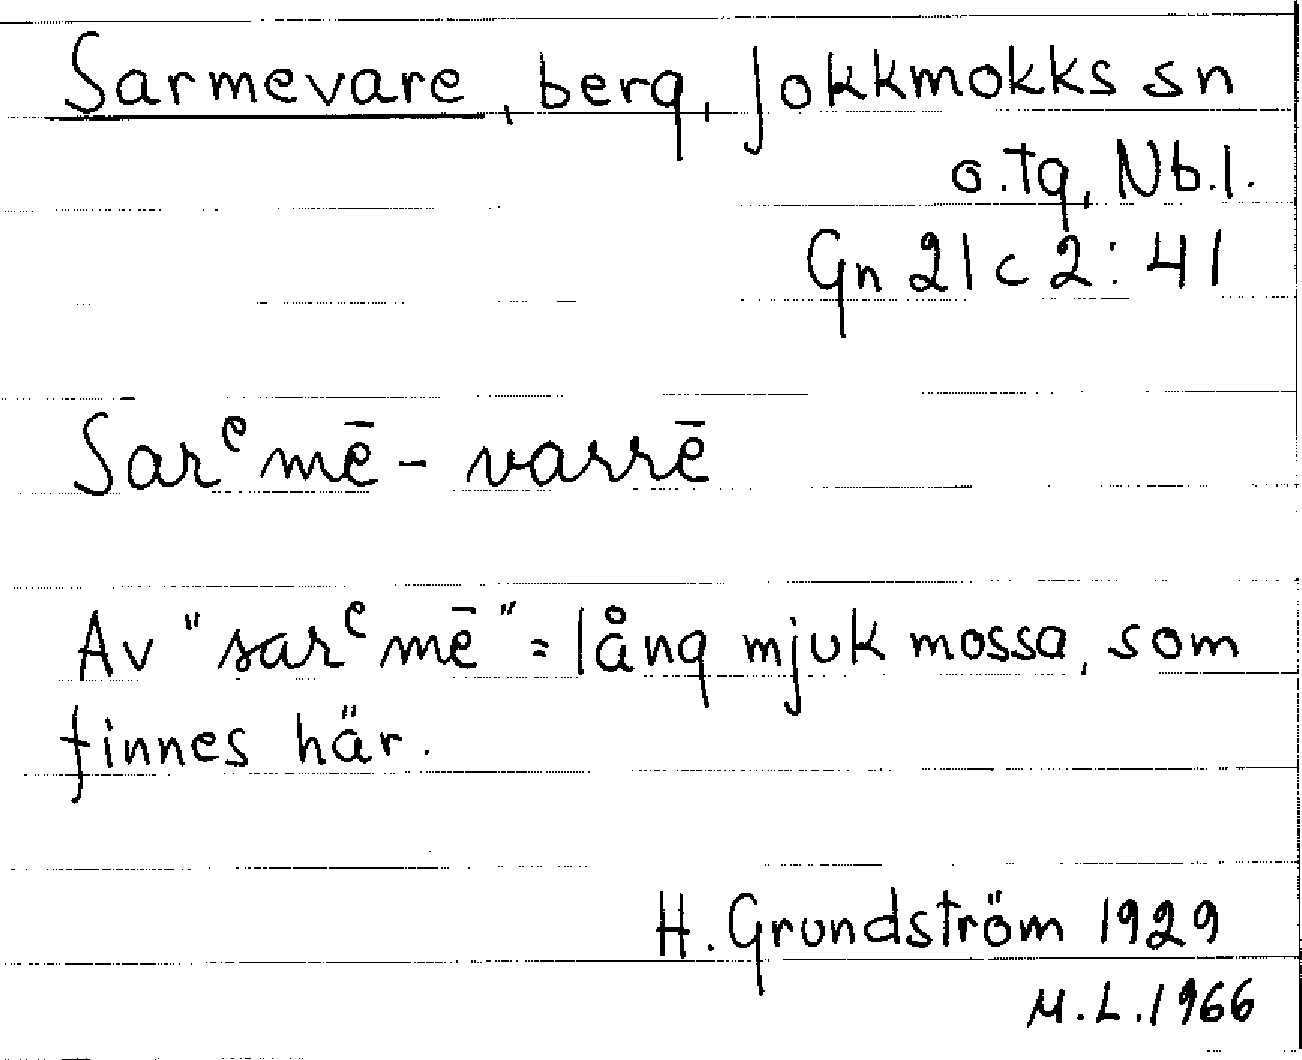 Sarmevare, berg, Jokkmokks sn
o. tg, Nb.l.
Gn 21 c 2:41
Sarᵉmē-varrē
Av "sarᵉmē" = lång mjuk mossa, som
finnes här.
H. Grundström 1929
M.L. 1966